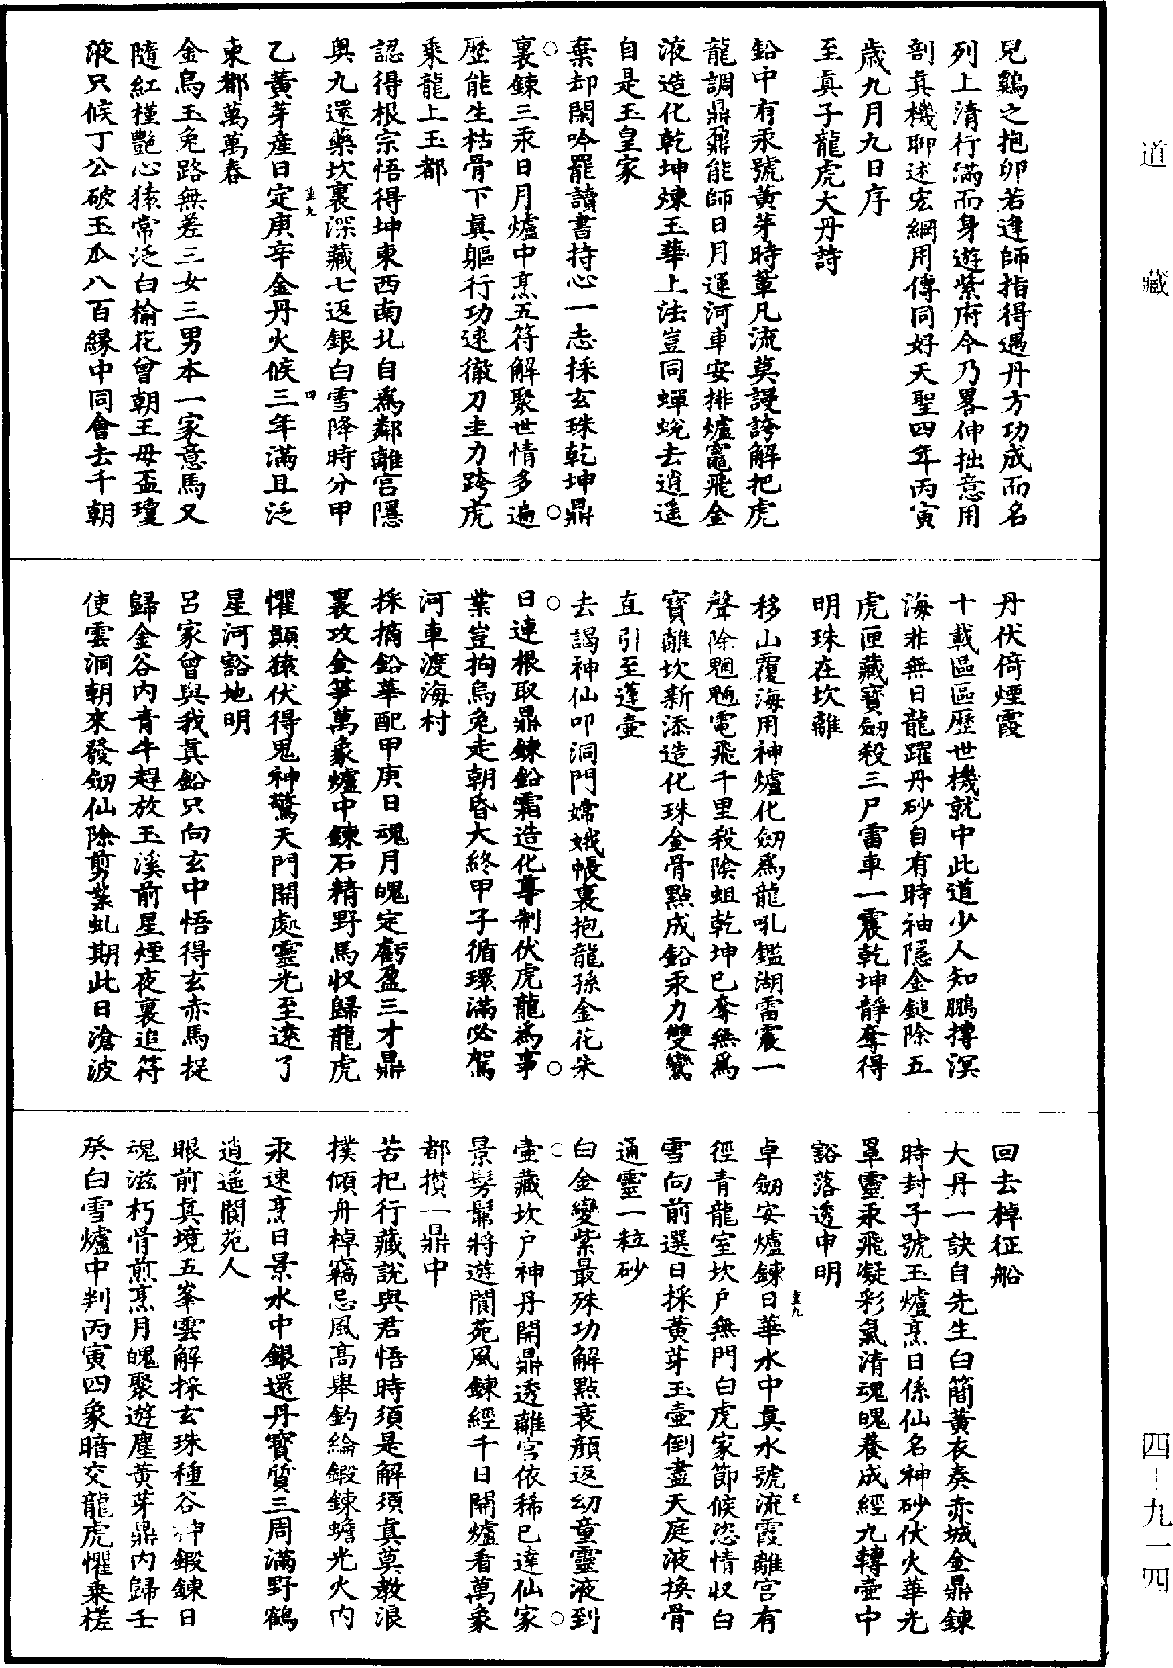 道藏
兒鷄之抱卵若逢師指得遇丹方功成而名
列上清行滿而身遊紫府今乃畧伸拙意用
剖真機聊述宏綱用傳同好天聖四年丙寅
歲九月九日序
至真子龍虎大丹詩
鉛中有汞號黃芽時輩凡流莫謾誇解把虎
龍調鼎鼐能師日月運河車安排爐竈飛金
液造化乾坤煉玉華上法豈同蟬蛻去逍遥
自是玉皇家
棄却閑吟罷讀書持心一志採玄珠乾坤鼎
裏鍊三汞日月爐中烹五符解聚世情多遍
歷能生枯骨下真軀行功速徹刀圭力跨虎
乘龍上玉都
認得根宗悟得坤東西南北自爲鄰離宫隱
奥九還藥坎裏深藏七返銀白雪降時分甲
乙黃芽産日定庚辛金丹火候三年滿且泛
東都萬萬春
金烏玉兔路無差三女三男本一家意馬又
隨紅槿艷心猿常泛白榆花曾朝王母盃瓊
液只候丁公破玉瓜八百緣中同會去千朝
丹伏倚煙霞
十載區區歷世機就中此道少人知鵬摶溟
海非無日龍躍丹砂自有時袖隱金鎚除五
虎匣藏寳劒殺三尸雷車一震乾坤靜奪得
明珠在坎離
移山覆海用神爐化劒爲龍吼鑑湖雷震一
聲除魍魎電飛千里殺陰蛆乾坤已奪無爲
寳離坎新添造化珠金骨點成鉛汞力雙鸞
直引至蓬壺
去謁神仙叩洞門嫦娥帳裏抱龍孫金花朱
日連根取鼎鍊鉛霜造化尊制伏虎龍爲事
業豈拘烏兔走朝昏大終甲子循環滿必駕
河車渡海村
採摘鉛華配甲庚日魂月魄定虧盈三才鼎
裏攻金笋萬象爐中鍊石精野馬収歸龍虎
懼顛猿伏得鬼神驚天門開處靈光至遠了
星河豁地明
呂家曾與我真鉛只向玄中悟得玄赤馬捉
歸金谷内青牛趕放玉溪前星煙夜裏追符
使雲洞朝來發劒仙除剪紫虬期此日滄波
回去棹征船
大丹一訣自先生白簡黃衣奏赤城金鼎鍊
時封子號玉爐烹日係仙名神砂伏火華光
罩靈汞飛凝彩氣清魂魄養成經九轉壺中
豁落透申明
卓劒安爐鍊日華水中真水號流霞離宫有
徑青龍室坎戶無門白虎家節候恣情収白
雪向前選日採黃芽玉壺倒盡天庭液換骨
通靈一粒砂
白金變紫最殊功解點衰顏返幼童靈液到
壺藏坎戶神丹開鼎透離宫依稀已達仙家
景髣髴將遊閬苑風鍊經千日開爐看萬象
都攢一鼎中
苦把行藏說與君悟時須是解須真莫教浪
撲傾舟棹竊忌風高舉釣綸鍛鍊蟾光火内
汞速烹日景水中銀還丹寳質三周滿野鶴
逍遥閬苑人
眼前真境五峯雲解採玄珠種谷神鍛鍊日
魂滋朽骨煎烹月魄聚遊塵黃芽鼎内歸壬
癸白雪爐中判丙寅四象暗交龍虎懼乘槎
四-九一四